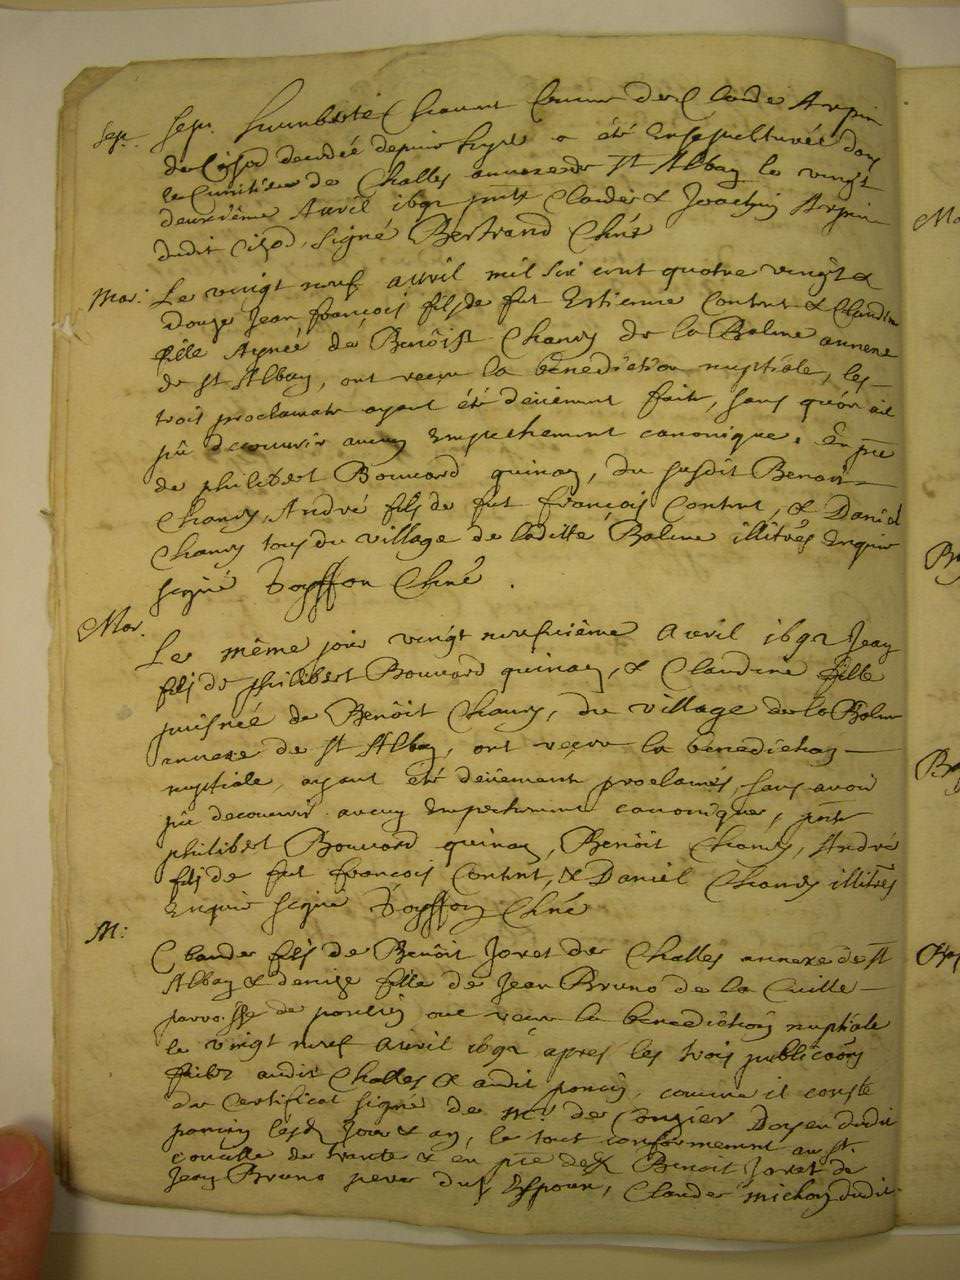 Sep.re Sep.re humberte Chanut femme de Claude Arpin
de Cisod decedée depuis hyer a été Ensepulturée dans
le Cimitiere de Challes annexe de st Alban le vingt
deuxième Avril 1692 pnts Claude & Joachin Arpin
dudit Cisod, signé Bertrand Curé
Mar: Le vingt neuf avril mil six cent quatre vingt &
douze Jean françois fils de fut Estienne Contnt & Claudine
fille Aynée de Benôist Chanvy de la Balme annexe
de st Alban, ont reçeu la benediction nuptiale, les
trois proclamats ayant été deüement faits, sans qu'on ait
pû decouvrir aucun Empechement canonique. En pnce
de philibert Bouvard quinan, du susdit Benoit
Chanvy, André fils de fut françois Contnt, & Daniel
Chanvy tous du village de laditte Balme illitrés Enquis
signé Curé.
Mar. Le même jour vingt neufvième Avril 1692 Jean
fils de philibert Bouvard quinan, & Claudine fille
puisnée de Benôit Chanvy, du village de la Balme
annexe de st Alban, ont reçeu la benediction
nuptiale, ayant été deüement proclamés, sans avoir
pû decouvrir aucun Empechement canonique, pnts
philibert Bouvard quinan, Benôit Chanvy, André
fils de fut françois Contnt, & Daniel Chanvy illitrés
Enquis signé Curé
M: Claude fils de Benôit Joret de Challes annexe de st
Alban & denise fille de Jean Bruno de la Cueille
parroisse de poncin ont reçeu la benediction nuptiale
le vingt neuf Avril 1692 apres les trois publicaôns
faites audit Challes & audit poncin, comme il conste
du Certificat signé de mr. de Conzier Doyen dudit
poncin lesd Jour & an, le tout conformement au st.
concille de trente & en pnce de Benoit Joret de
Jean Bruno peres dud Espoux, Claude michon dudit